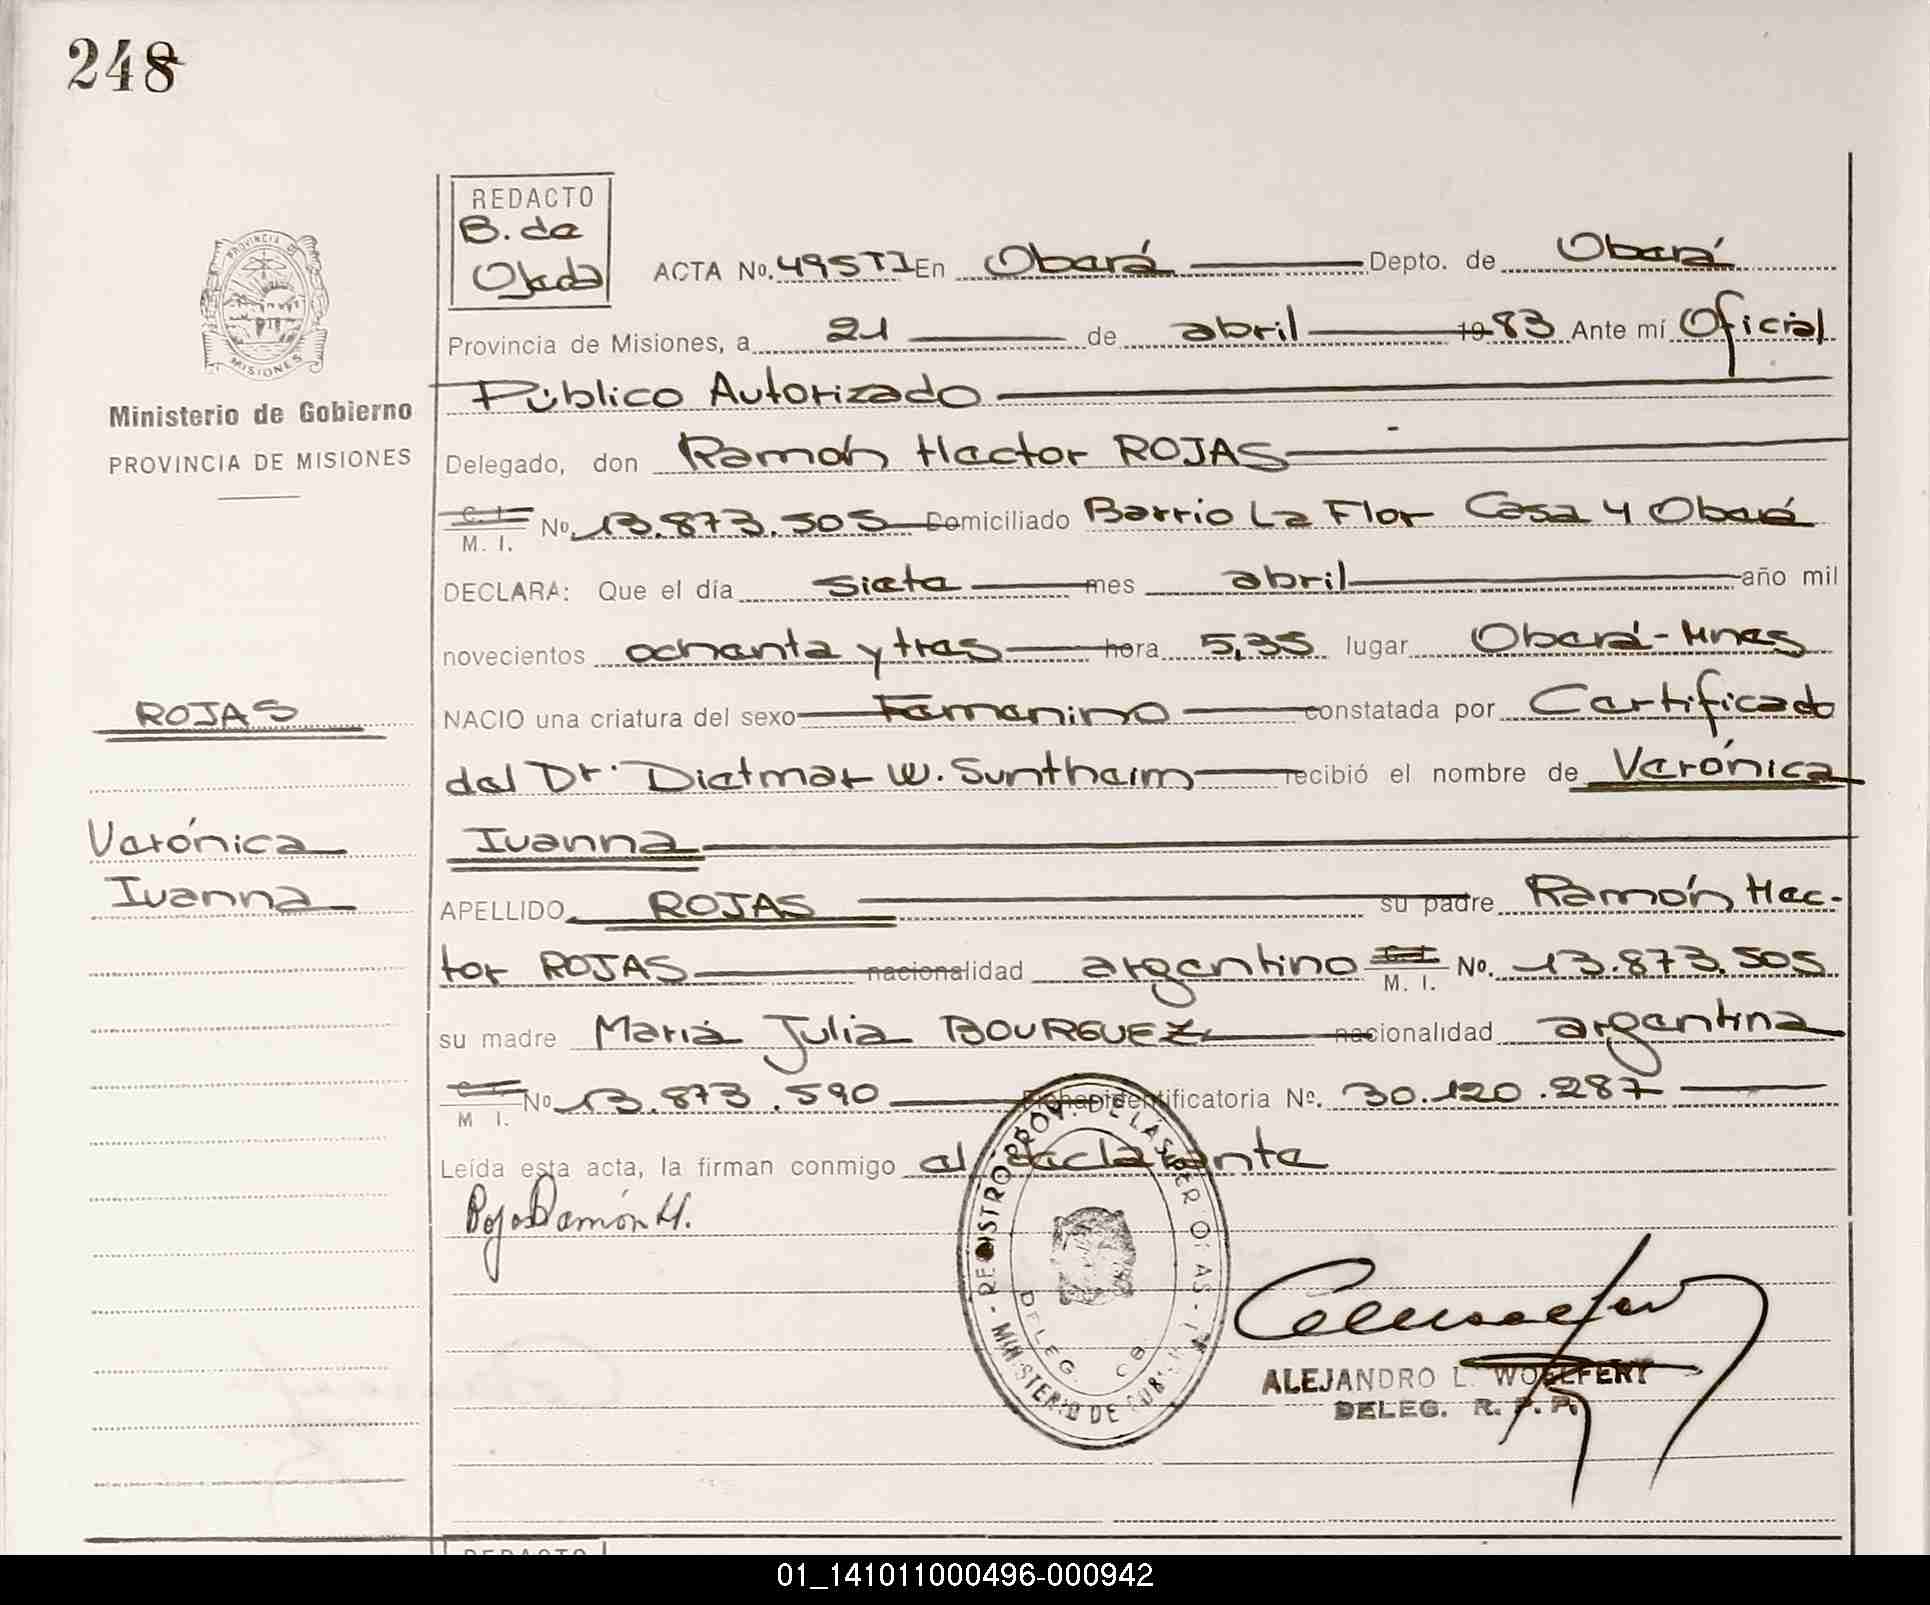 248
REDACTO
B. de
Ojeda
ACTA No. 495TI En Oberá Depto. de Oberá
Provincia de Misiones, a 21 de abril 1983 Ante mí Oficial
Público Autorizado
Ministerio de Gobierno
PROVINCIA DE MISIONES
Delegado, don Ramón Hector ROJAS
C. I.
M. I. No. 13.873.505 Domiciliado Barrio La Flor Casa 4 Oberá
DECLARA: Que el día siete mes abril año mil
novecientos ochenta y tres hora 5,35 lugar Oberá-Mnes
ROJAS
NACIO una criatura del sexo Femenino constatada por Certificado
del Dr. Dietmar W. Suntheim recibió el nombre de Verónica
Verónica
Ivanna
Ivanna
APELLIDO ROJAS su padre Ramón Hec-
tor ROJAS nacionalidad argentino C. I. M. I. No. 13.873.505
su madre María Julia BOURGUEZ nacionalidad argentina
C. I.
M I. No 13.873.590 Ficha identificatoria Nº. 30.120.287
Leída esta acta, la firman conmigo el declarante
Rojas Ramón H.
ALEJANDRO L. WOLFFERT
DELEG. R. P. P.
REDACTO
01_141011000496-000942